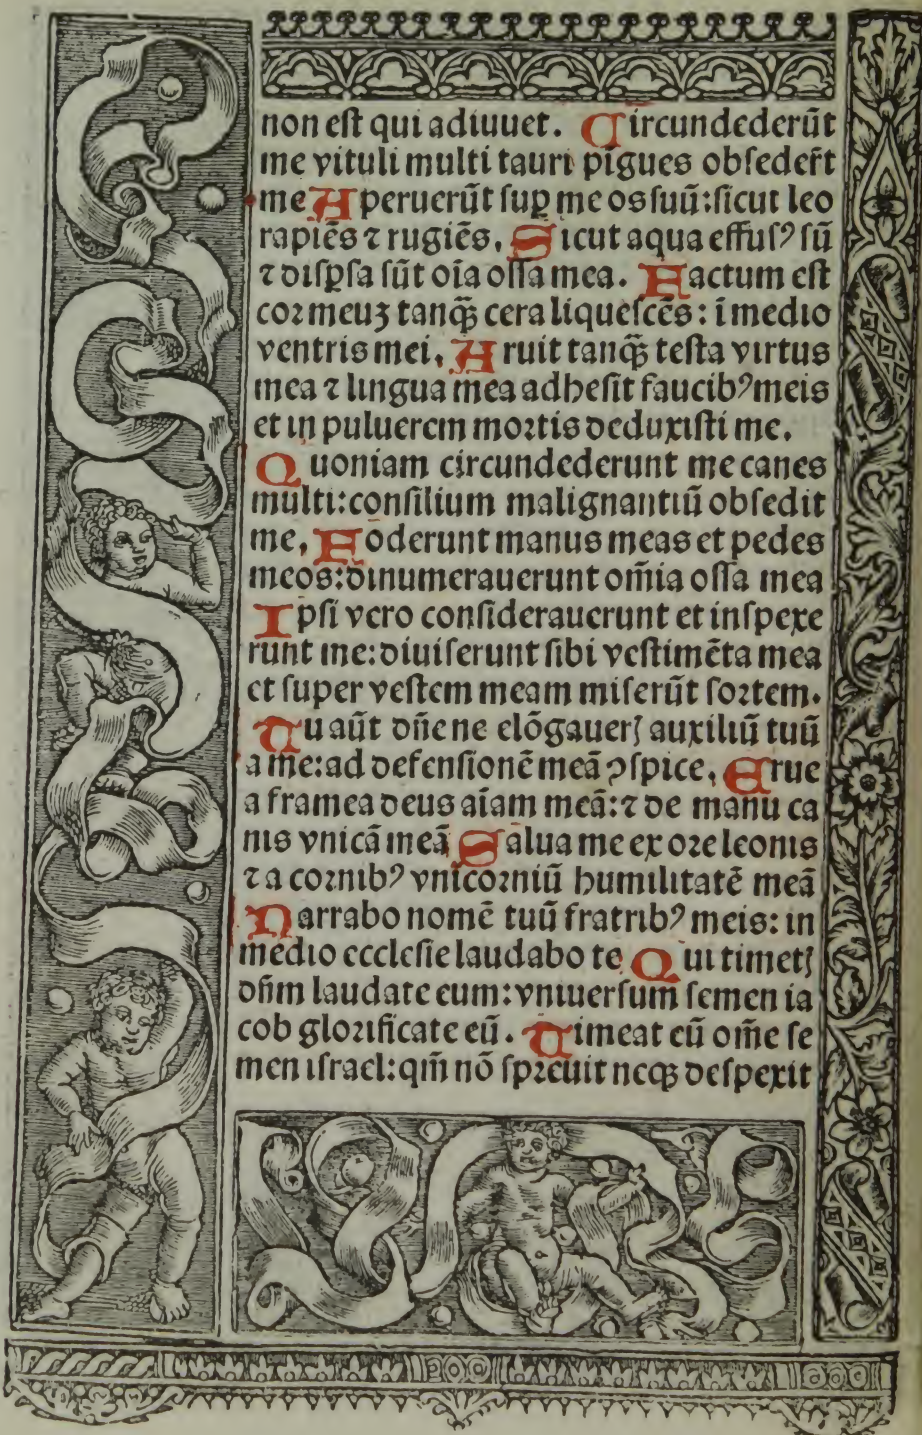 non est qui adiuuet. Circundederūt
me vituli multi tauri pigues obsederūt
me Aperuerūt sup̲ me os suū: sicut leo
rapiēs ⁊ rugiēs. Sicut aqua effusꝰ sū
⁊ disp̲sa sūt oīa ossa mea. Factum est
cor meuꝫ tanq̄ꝫ cera liquescēs: ī medio
ventris mei. Aruit tanq̄ꝫ testa virtus
mea ⁊ lingua mea adhesit faucibꝰ meis
et in puluerem mortis deduxisti me.
Quoniam circundederunt me canes
multi: consilium malignantiū obsedit
me. Foderunt manus meas et pedes
meos: dinumerauerunt om̄ia ossa mea
Ipsi vero considerauerunt et inspexe
runt me: diuiserunt sibi vestimēta mea
et super vestem meam miserūt sortem.
Tu aūt dn̄e ne elōgauerꝭ auxiliū tuū
a me: ad defensionē meā ꝯspice. Erue
a framea deus aīam meā: ⁊ de manu ca
nis vnicā meā Salua me ex ore leonis
⁊ a cornibꝰ vnicorniū humilitatē meā
Narrabo nomē tuū fratribꝰ meis: in
medio ecclesie laudabo te Qui timetꝭ
dn̄m laudate eum: vniuersum semen ia
cob glorificate eū. Timeat eū om̄e se
men israel: qm̄ nō spreuit neqꝫ despexit